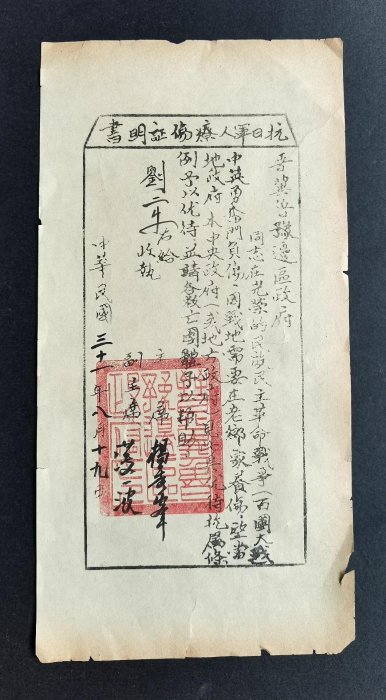 抗日軍人療傷証明書
晋冀鲁豫邊區政府
同志在光榮的民族民主革命戰爭一百團大戰
中英勇奮鬥負傷、因戰地需要在老鄉家養傷、望當
地政府本中央政府戰地政府抗属條
例予以优待並請各救亡團體予以帮助
右給
劉二牛收執
主席楊秀峯
副主席薄一波
中華民國三十一年八月十九日